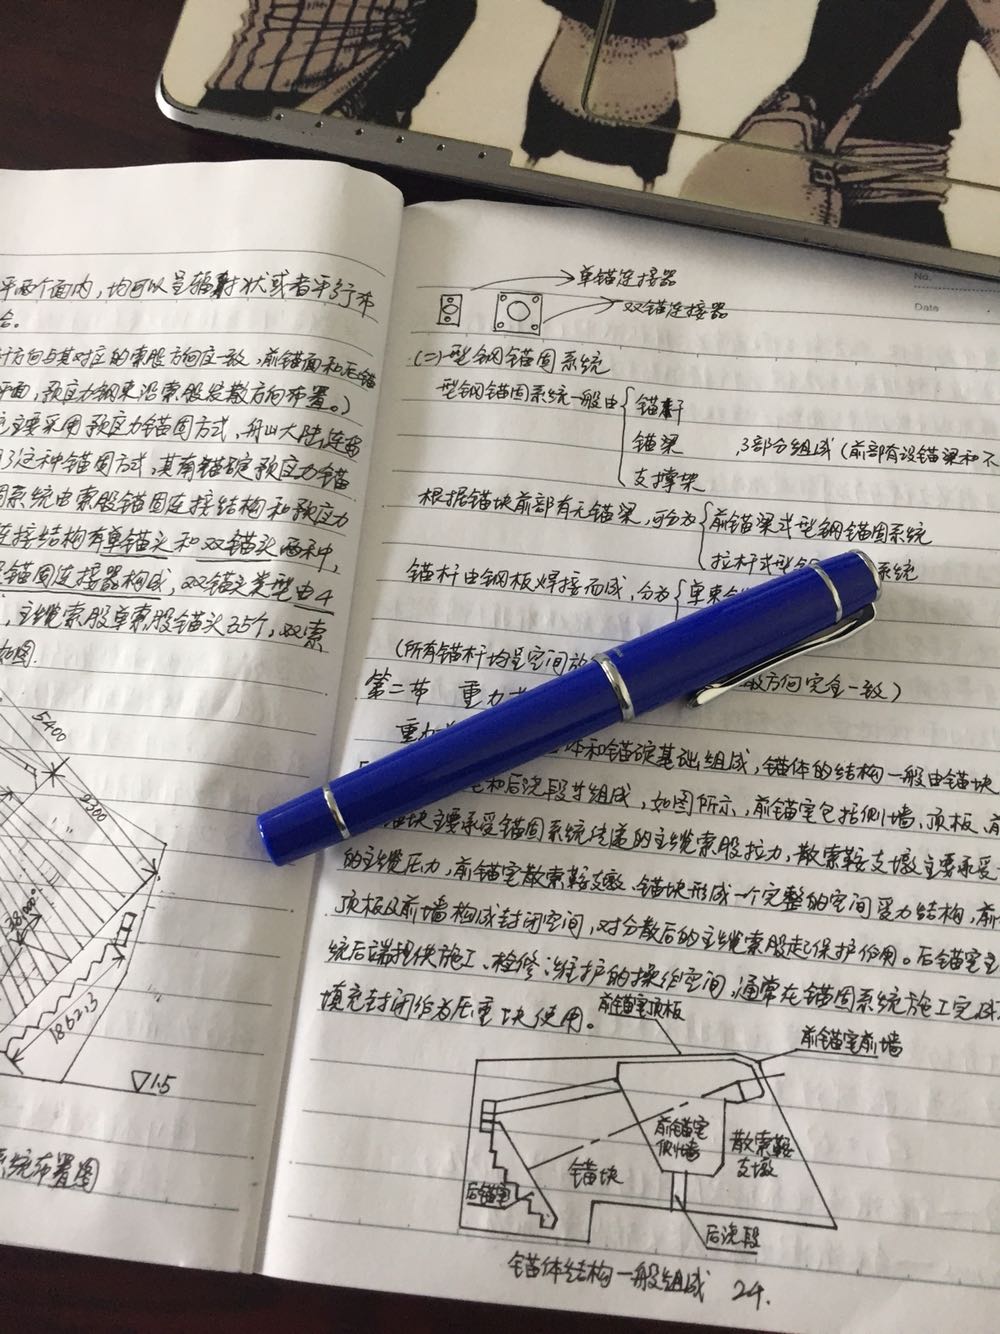 平两个面内，均可以呈辐射状或者平行布
合。
方向与其对应的索股方向应一致，前锚面和后锚
平面，预应力钢束沿索股发散方向布置。）
主要采用预应力锚固方式，舟山大陆连岛
了这种锚固方式，其有锚碇预应力锚
固系统由索股锚固连接结构和预应力
连接结构有单锚头和双锚头两种，
锚固连接器构成，双锚头类型由4
，主缆索股单索股锚头35个，双索
如图.
5400
2300
38.000
186213
▽1.5
系统布置图
No.
Date
单锚连接器
双锚连接器
(二)型钢锚固系统
型钢锚固系统一般由{锚杆
锚梁 3部分组成(前部有设锚梁和不
支撑架
根据锚块前部有无锚梁，可分为{前锚梁式型钢锚固系统
拉杆式型 系统
锚杆由钢板焊接而成，分为{单束
(所有锚杆均呈空间放 散方向完全一致)
第二节 重力
重力 体和锚碇基础组成，锚体的结构一般由锚块
和后浇段等组成，如图所示，前锚室包括侧墙、顶板、前
块主要承受锚固系统传递的主缆索股拉力，散索鞍支墩主要承受
的主缆压力，前锚室散索鞍支墩、锚块形成一个完整的空间受力结构，前
顶板及前墙构成封闭空间，对分散后的主缆索股起保护作用。后锚室主
统后端提供施工、检修、维护的操作空间，通常在锚固系统施工完成
填充封闭作为压重块使用。
前锚室顶板
前锚室前墙
前锚室
侧墙
散索鞍
支墩
锚块
后锚室
后浇段
锚体结构一般组成 24.